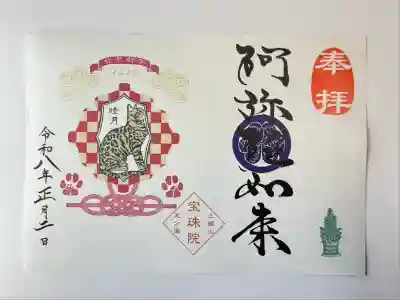 奉拝
阿弥陀如来
睦月
宝珠院
三縁山
令和八年正月二日